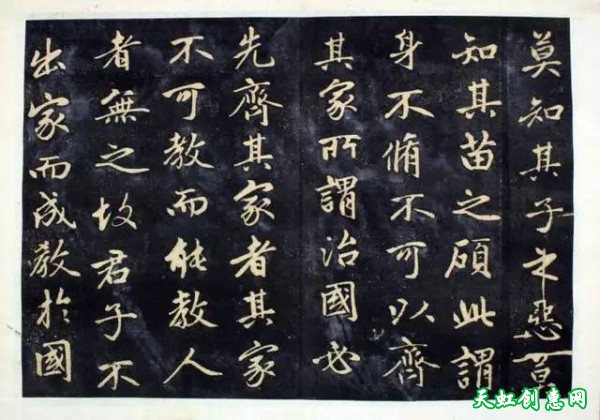 莫知其子之惡莫
知其苗之碩此謂
身不脩不可以齊
其家所謂治國必
先齊其家者其家
不可教而能教人
者無之故君子不
出家而成教於國
天虹创意网